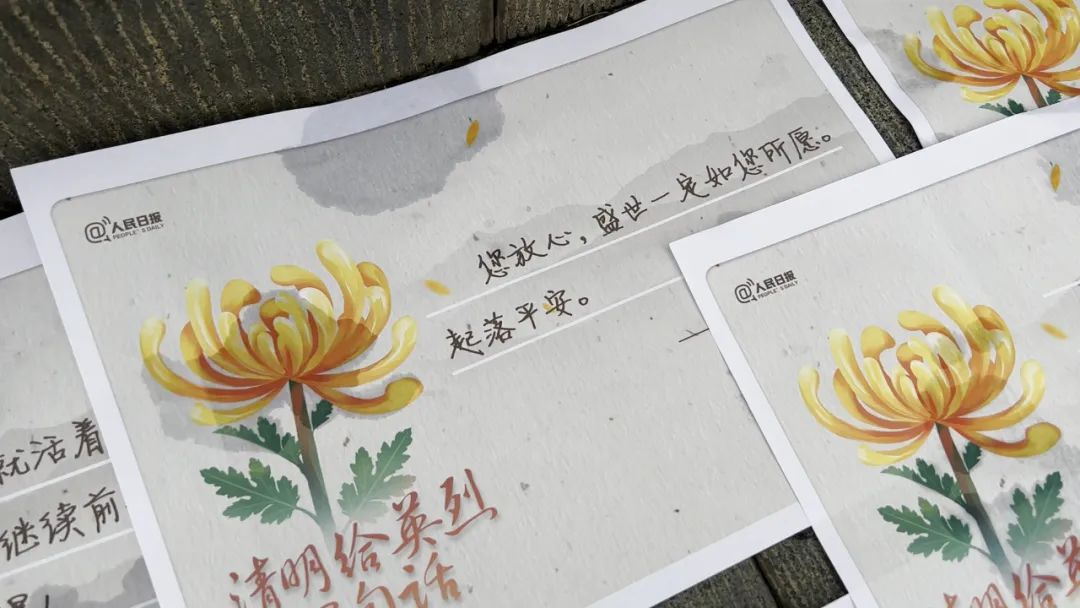 人民日报
PEOPLE'S DAILY
您放心，盛世一定如您所愿。
起落平安。
清明给英烈
句话
就活着
继续前
人民日报
PEOPLE'S DAILY
清明给